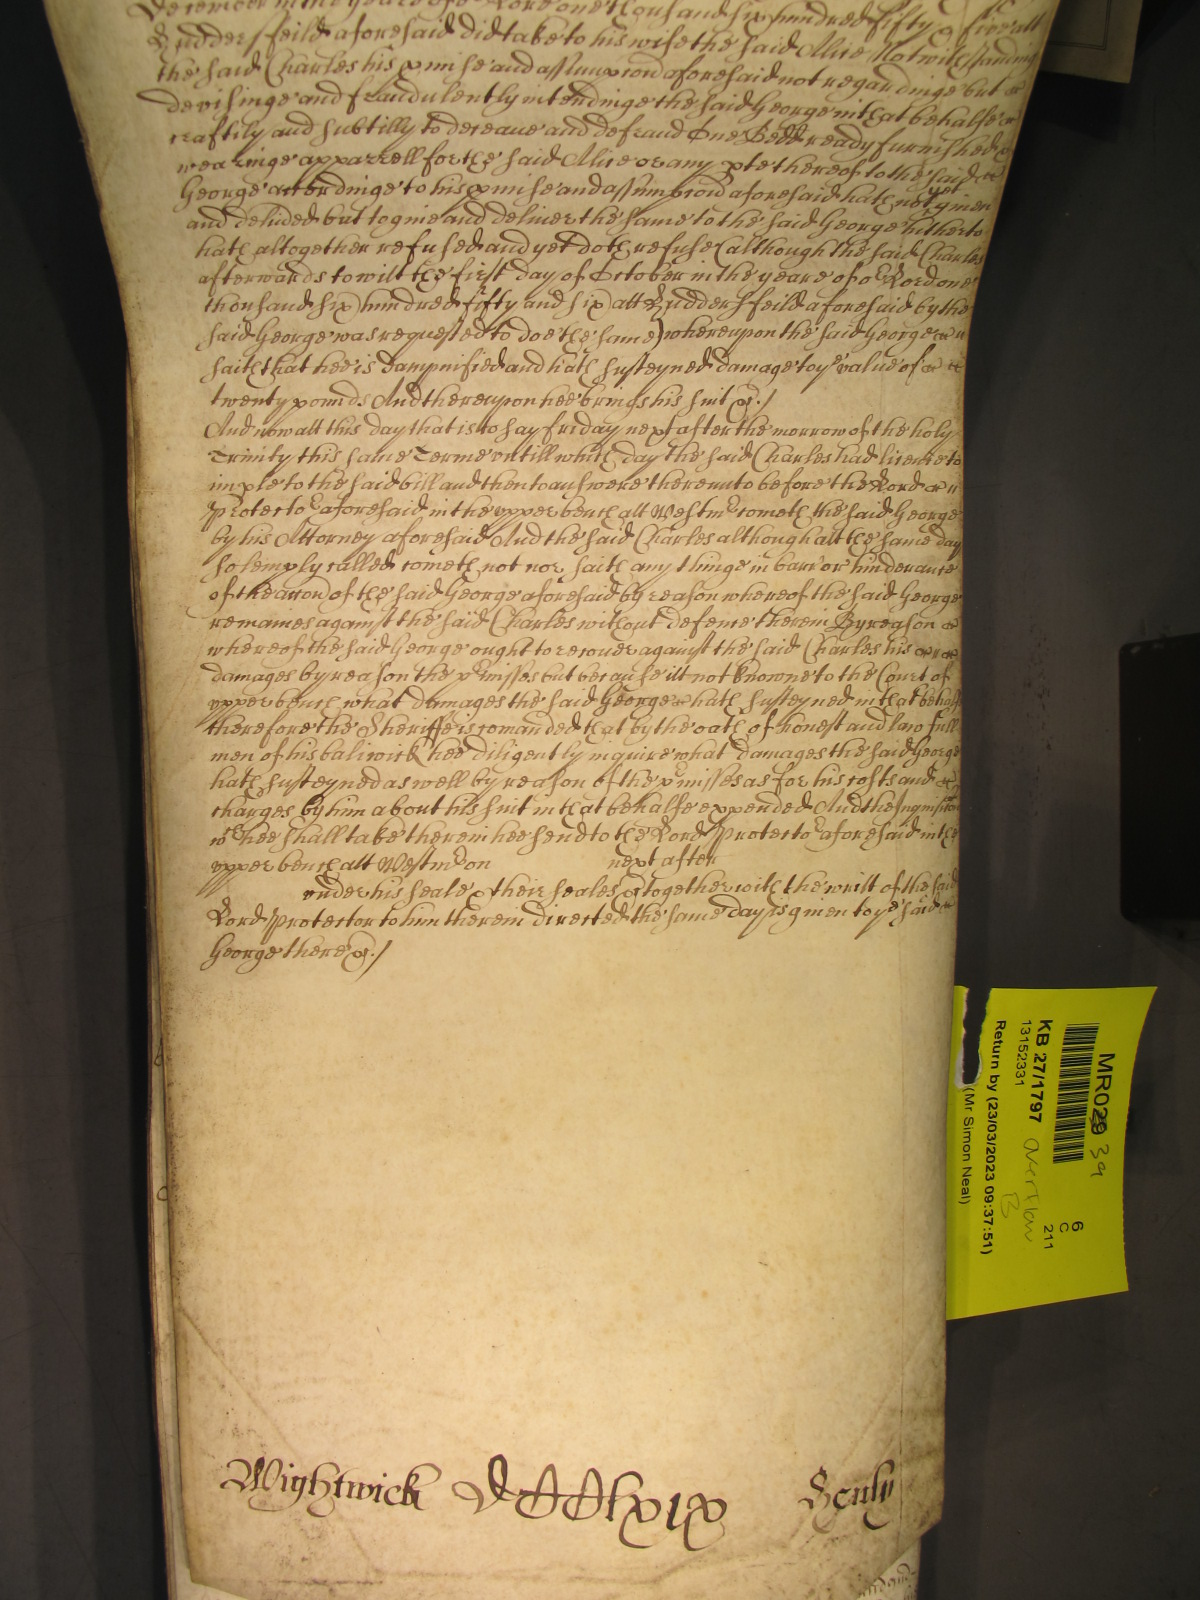 December in the yeare of or Lord one thousand six hundred fifty & five att
Huddersfeild aforesaid did take to his wife the said Alice Notwithstandinge
the said Charles his pmise and assumpcion aforesaid not regardinge but
devisinge and fraudulently intendinge the said George in that behalfe
craftily and subtilly to deceave and defraud One Bedd ready furnished
wearinge apparrell for the said Alice or any pte thereof to the said
George accordinge to his pmise and assumpcion aforesaid hath not yet given
and delivded but to give and deliver the same to the said George hitherto
hath altogether refused and yet doth refuse (although the said Charles
afterwards to witt the first day of October in the yeare of or Lord one
thousand six hundred fifty and six att Huddersfeild aforesaid by the
said George was requested to doe the same) whereupon the said George
saith that hee is dampnified and hath susteyned damage to ye value of
twenty pounds And thereupon hee brings his suit &c./
And now att this day that is to say friday next after the morrow of the holy
Trinity this same Terme untill which day the said Charles had licence to
imple to the said bill and then to answere thereunto before the Lord
Protector aforesaid in the upper bench att Westmr cometh the said George
by his Attorney aforesaid And the said Charles although att the same day
solemply called cometh not nor saith any thinge in barr or hinderance
of the accon of the said George aforesaid by reason whereof the said George
remaines against the said Charles without defence therein By reason
whereof the said George ought to recover against the said Charles his
damages by reason the pmisses but because itt not knowne to the Court of
upper bench what damages the said George hath susteyned in that behalfe
therefore the Sheriffe is comanded that by the oath of honest and lawfull
men of his baliwick hee diligently inquire what damages the said George
hath susteyned as well by reason of the pmisses as for his costs and
charges by him about his suit in that behalfe expended And the Inquisicon
wch hee shall take therein hee send to the Lord Protector aforesaid in the
upper bench att Westmr on next after
under his seale & their seales &c together with the writt of the said
Lord Protector to him therein directed the same day is given to ye said
George there &c./
Wightwick DCClxix Henly
MR029 39
KB 27/1797
13152331
overflow
B
6
C
211
Return by (23/03/2023 09:37:51)
(Mr Simon Neal)